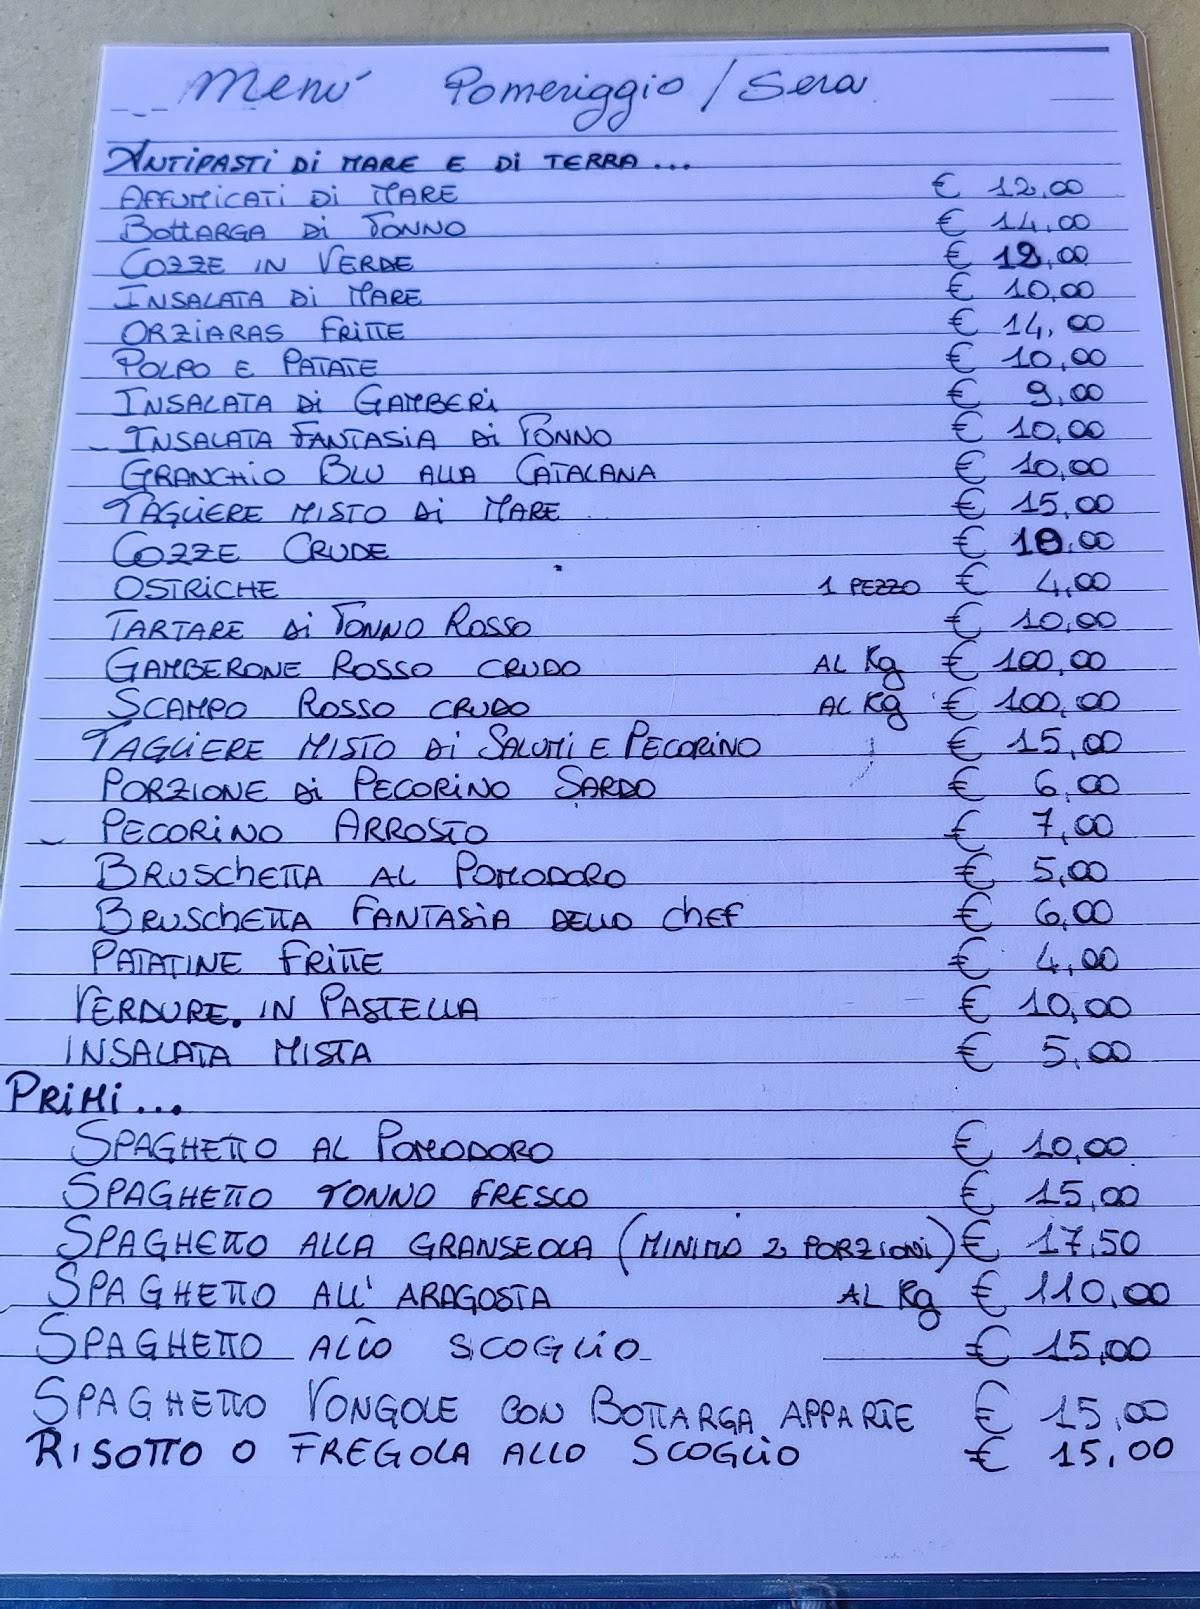 Menú Pomeriggio / Sera
ANTIPASTI Di MARE E Di TERRA...
AFFUMICATI Di MARE € 12,00
BOTTARGA Di TONNO € 14,00
COZZE IN VERDE € 12,00
INSALATA Di MARE € 10,00
ORZIARAS FRITTE € 14,00
POLPO E PATATE € 10,00
INSALATA Di GAMBERi € 9,00
INSALATA FANTASiA Di TONNO € 10,00
GRANCHiO BLU ALLA CATALANA € 10,00
TAGLIERE MISTO Di MARE € 15,00
COZZE CRUDE € 10,00
OSTRiCHE 1 PEZZO € 4,00
TARTARE Di TONNO ROSSO € 10,00
GAMBERONE ROSSO CRUDO AL Kg € 100,00
SCAMPO ROSSO CRUDO AL Kg € 100,00
TAGLIERE MISTO Di SALUMI E PECORINO € 15,00
PORZIONE Di PECORiNO SARDO € 6,00
PECORiNO ARROSTO € 7,00
BRUSChETTA AL POMODORO € 5,00
BRUSChETTA FANTASiA DELLO ChEF € 6,00
PATATINE FRITTE € 4,00
VERDURE. IN PASTELLA € 10,00
INSALATA MISTA € 5,00
PRiMi...
SPAGHETTO AL POMODORO € 10,00
SPAGHETTO TONNO FRESCO € 15,00
SPAGHETTO ALLA GRANSEOLA (MINIMO 2 PORZIONi) € 17,50
SPAGHETTO ALL' ARAGOSTA AL Kg € 110,00
SPAGHETTO ALLO SCOGLIO € 15,00
SPAGHETTO VONGOLE CON BOTTARGA APPARTE € 15,00
RISOTTO O FREGOLA ALLO SCOGLiO € 15,00